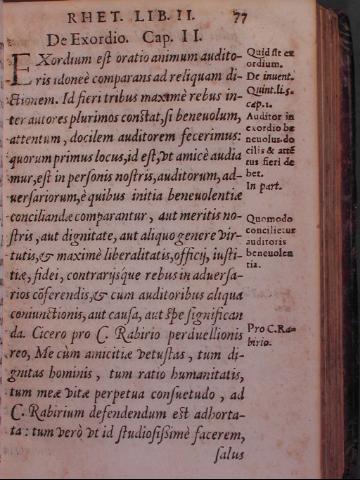 RHET. LIB. II. 77
De Exordio. Cap. II.
EXordium est oratio animum audito-
ris idoneè comparans ad reliquam di-
ctionem. Id fieri tribus maximè rebus in-
ter autores plurimos constat, si beneuolum,
attentum, docilem auditorem fecerimus:
quorum primus locus, id est, vt amicè audia
mur, est in personis nostris, auditorum, ad-
uersariorum, è quibus initia beneuolentiæ
conciliandæ comparantur, aut meritis no-
stris, aut dignitate, aut aliquo genere vir-
tutis, & maximè liberalitatis, officij, iusti-
tiæ, fidei, contrarijsque rebus in aduersa-
rios cõferendis, & cum auditoribus aliqua
coniunctionis, aut causa, aut spe significan
da. Cicero pro C. Rabirio perduellionis
reo, Me cùm amicitiæ vetustas, tum di-
gnitas hominis, tum ratio humanitatis,
tum meæ vitæ perpetua consuetudo, ad
C. Rabirium defendendum est adhorta-
ta: tum verò vt id studiosissimè facerem,
salus
Quid sit ex
ordium.
De inuent.
Quint. li. 5.
cap. 1.
Auditor in
exordio be
neuolus do
cilis & attẽ
tus fieri de
bet.
In part.
Quomodo
concilietur
auditoris
beneuolen
tia.
Pro C. Ra-
birio.